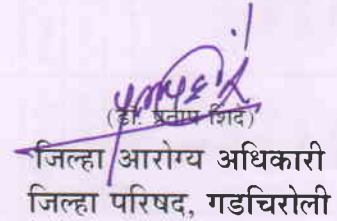 (डॉ. प्रताप शिंदे)
जिल्हा आरोग्य अधिकारी
जिल्हा परिषद, गडचिरोली